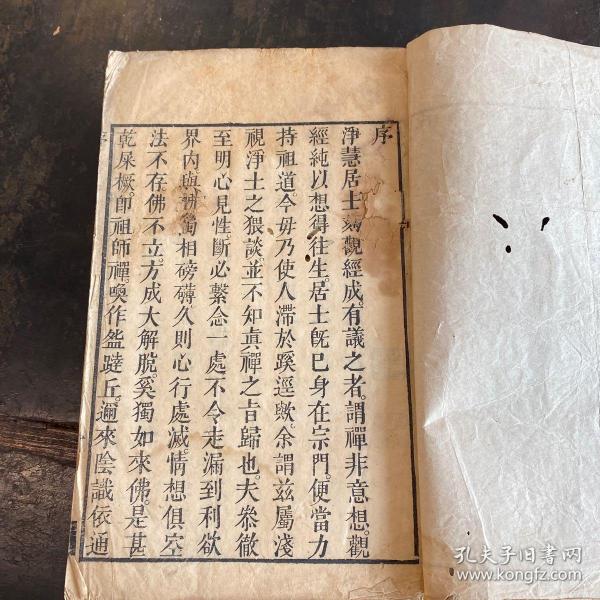 序
淨慧居士刻觀經成。有議之者。謂禪非意想。觀
經純以想得往生。居士旣已身在宗門。便當力
持祖道。今毋乃使人滯於蹊逕歟。余謂茲屬淺
視淨土之猥談。並不知眞禪之旨歸也。夫叅徹
至明心見性。斷必繫念一處。不令走漏到利欲
界內。與佛觸相磅礴。久則心行處滅。情想俱空
法不存。佛不立。方成大解脫。奚獨如來佛。是甚
乾屎橛。卽祖師禪。喚作盌躂丘。邇來陰識依通
孔夫子旧书网
www.kongfz.com